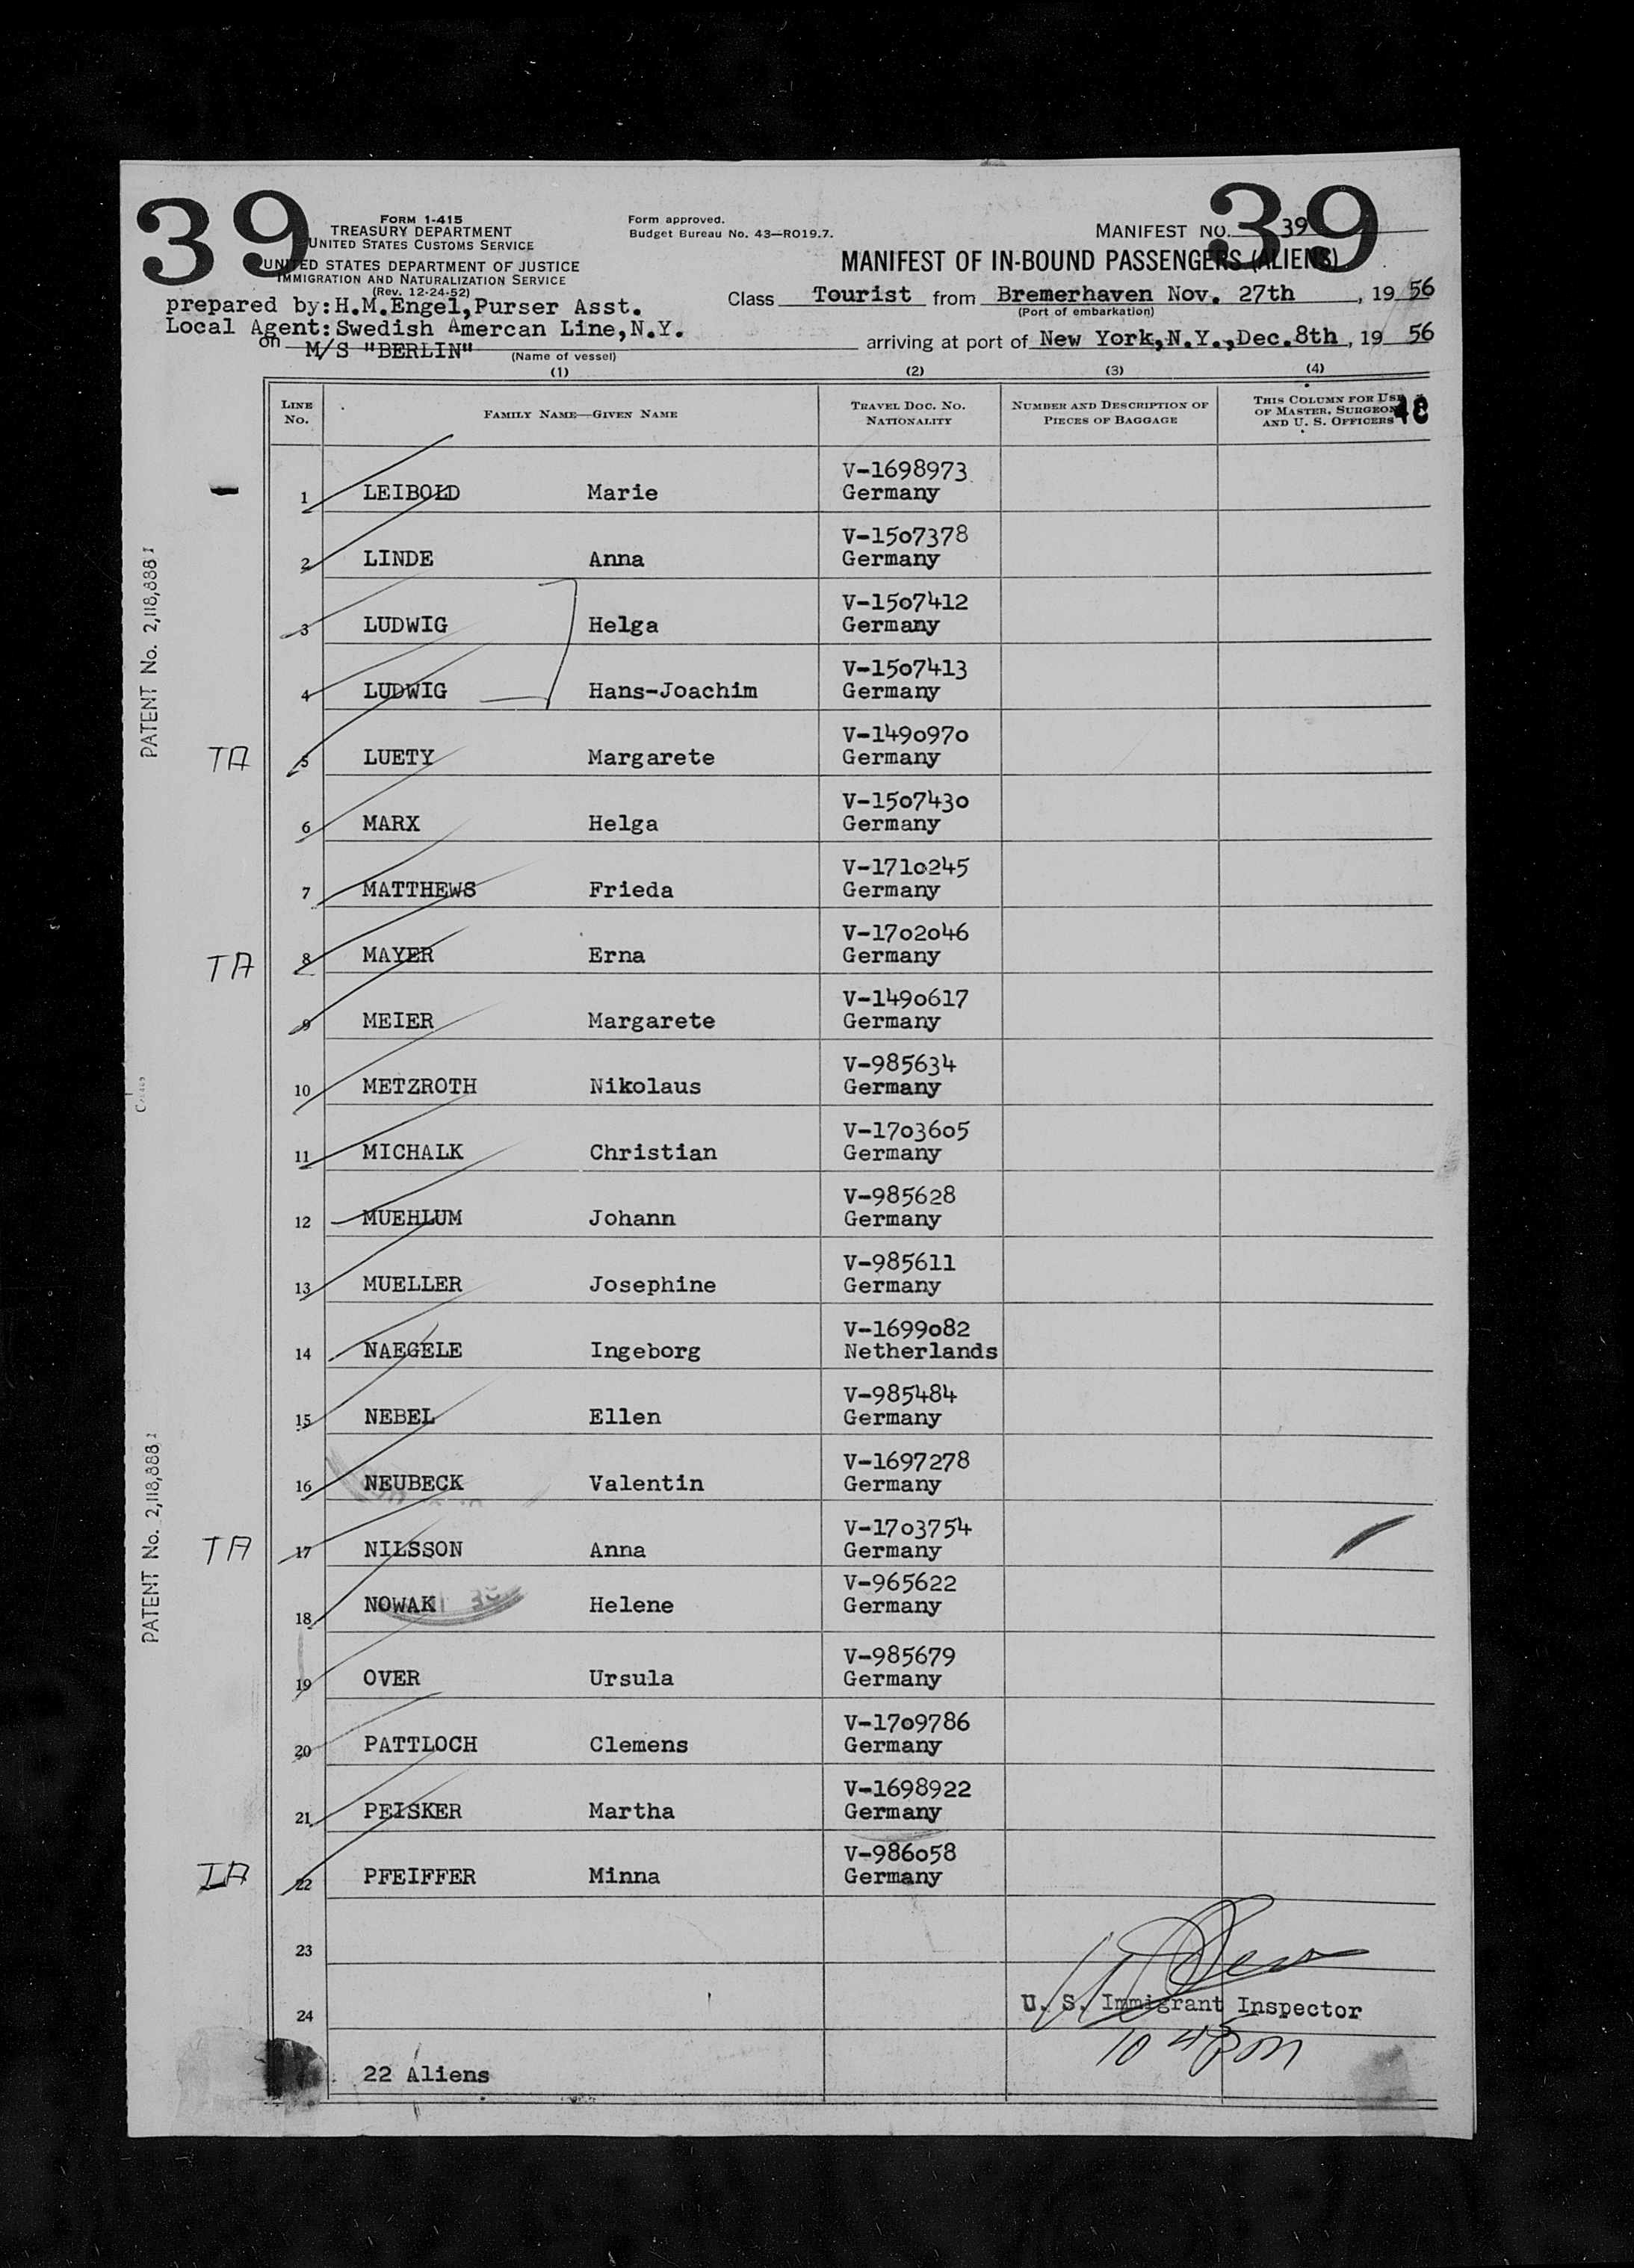 39
39
FORM I-415
TREASURY DEPARTMENT
UNITED STATES CUSTOMS SERVICE
UNITED STATES DEPARTMENT OF JUSTICE
IMMIGRATION AND NATURALIZATION SERVICE
(Rev. 12-24-52)
Form approved.
Budget Bureau No. 43—RO19.7.
MANIFEST NO. 39
MANIFEST OF IN-BOUND PASSENGERS (ALIENS)
prepared by:H.M.Engel,Purser Asst.
Class Tourist from Bremerhaven Nov. 27th, 19 56
(Port of embarkation)
Local Agent:Swedish Amercan Line,N.Y.
on M/S "BERLIN" arriving at port of New York,N.Y.,Dec.8th, 19 56
(Name of vessel)
(1) (2) (3) (4)
LINE NO. FAMILY NAME—GIVEN NAME TRAVEL DOC. NO. NATIONALITY NUMBER AND DESCRIPTION OF PIECES OF BAGGAGE THIS COLUMN FOR USE OF MASTER, SURGEON AND U. S. OFFICERS
V-1698973
1 LEIBOLD Marie Germany
V-1507378
2 LINDE Anna Germany
V-1507412
3 LUDWIG Helga Germany
V-1507413
4 LUDWIG Hans-Joachim Germany
V-1490970
TA 5 LUETY Margarete Germany
V-1507430
6 MARX Helga Germany
V-1710245
7 MATTHEWS Frieda Germany
V-1702046
TA 8 MAYER Erna Germany
V-1490617
9 MEIER Margarete Germany
V-985634
10 METZROTH Nikolaus Germany
V-1703605
11 MICHALK Christian Germany
V-985628
12 MUEHLUM Johann Germany
V-985611
13 MUELLER Josephine Germany
V-1699082
14 NAEGELE Ingeborg Netherlands
V-985484
15 NEBEL Ellen Germany
V-1697278
16 NEUBECK Valentin Germany
V-1703754
TA 17 NILSSON Anna Germany
V-965622
18 NOWAK Helene Germany
V-985679
19 OVER Ursula Germany
V-1709786
20 PATTLOCH Clemens Germany
V-1698922
21 PEISKER Martha Germany
V-986058
IA 22 PFEIFFER Minna Germany
23
U. S. Immigrant Inspector
24
22 Aliens
PATENT No. 2,118,888
PATENT No. 2,118,888